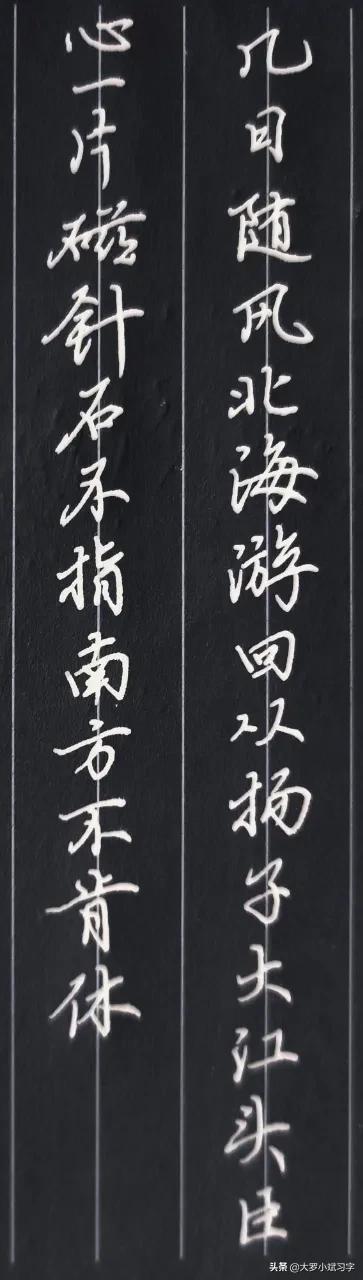 几日随风北海游回从扬子大江头臣
心一片磁針石不指南方不肯休
头条 @大罗小斌习字